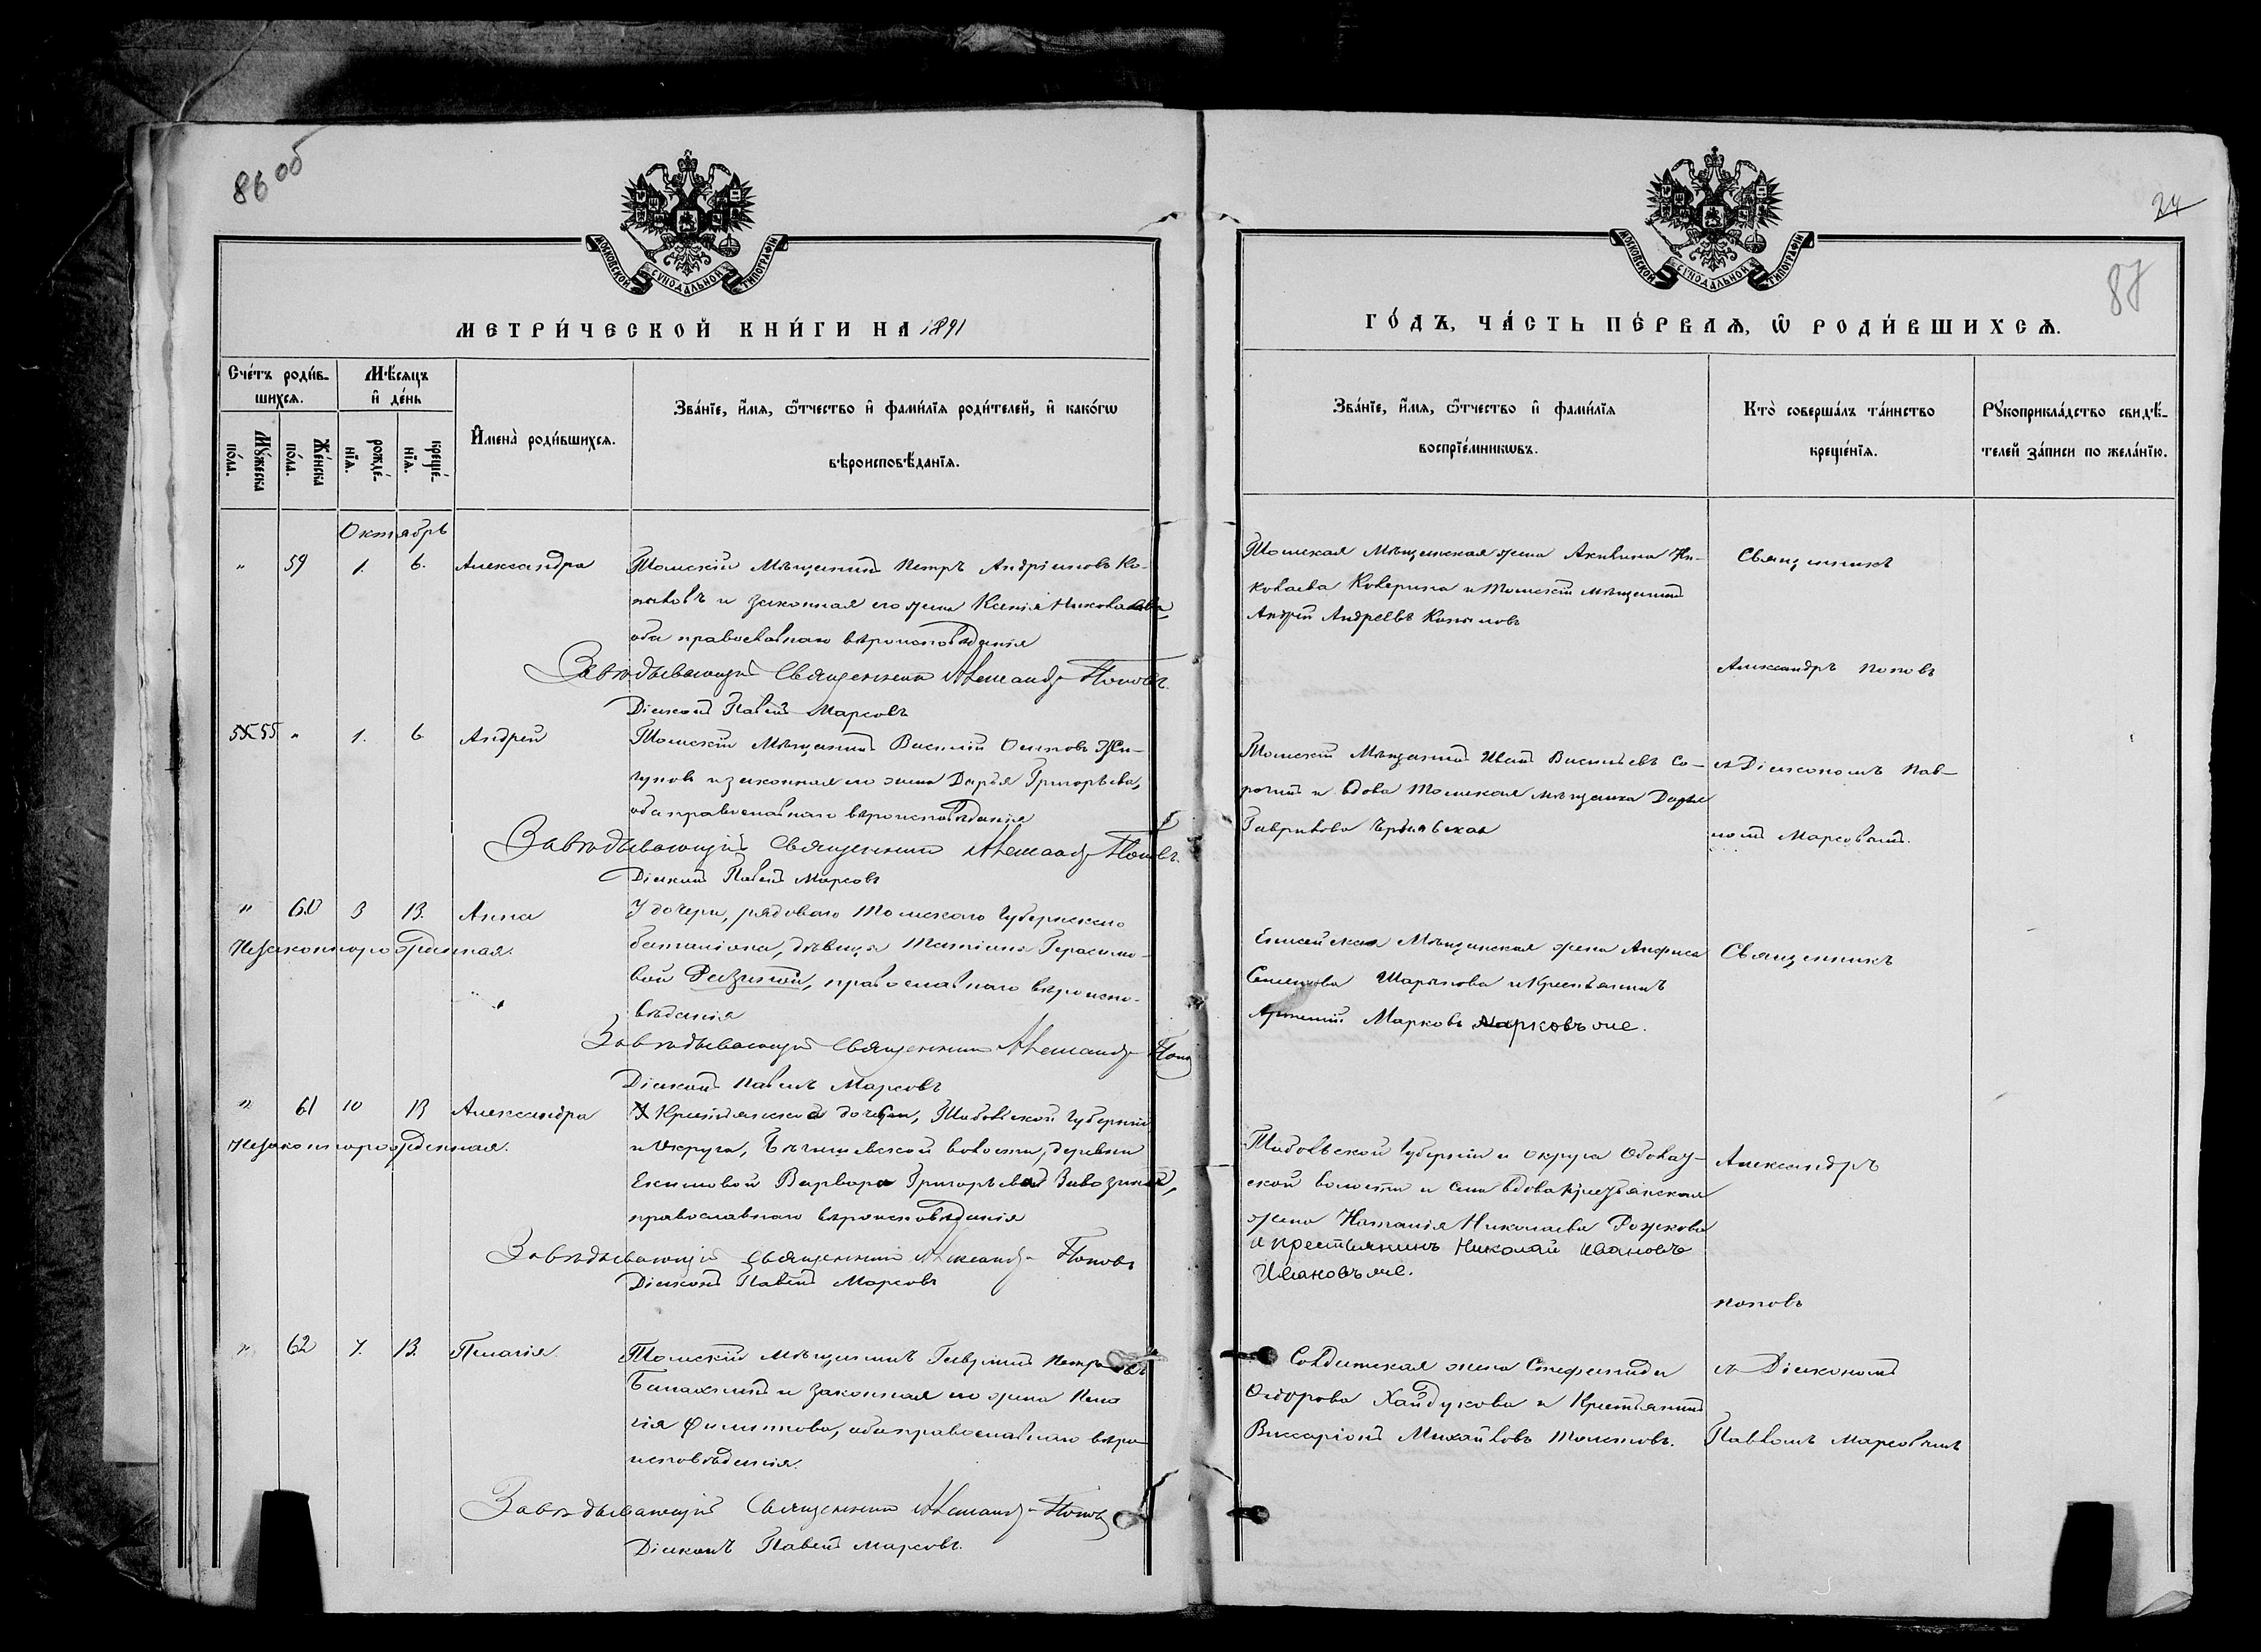 86 об
МОСКОВСКОЙ СУНОДАЛЬНОЙ ТИПОГРАФІИ
МЕТРИ́ЧЕСКОЙ КНИ́ГИ НА 1891
Сче́тъ роди́в-
шихсѧ.
Мѣ́сѧцъ
и҆ де́нь
Мꙋ́жеска
по́ла.
Же́нска
по́ла.
рожде́-
нїѧ.
креще́-
нїѧ.
И҆мена̀ роди́вшихсѧ.
Зва́нїе, и҆́мѧ, ѻ҆́тчество и҆ фами́лїѧ роди́телей, и҆ како́гѡ
вѣроисповѣ́данїѧ.
Октябрь
" 59 1. 6. Александра
Томскій Мѣщанинъ Петръ Андріановъ Ко-
пыловъ и законная его жена Ксенія Николаева
оба православнаго вѣроисповѣданія
Завѣдывающій Священникъ Александръ Поповъ.
Діаконъ Павелъ Марсовъ
55 " 1. 6 Андрей
Томскій Мѣщанинъ Василій Осиповъ
и законная его жена Дарья Григорьева,
оба православнаго вѣроисповѣданія
Завѣдывающій Священникъ Александръ Поповъ.
Діаконъ Павелъ Марсовъ
" 60 3 13. Анна
Незаконнорожденная.
У дочери, рядового Томскаго Губернскаго
баталіона, дѣвицы Татіаны Герасимо-
вой, православнаго вѣроиспо-
вѣданія
Завѣдывающій Священникъ Александръ Попов
Діаконъ Павелъ Марсовъ
" 61 10 13 Александра
Незаконнорожденная.
Крестьянская дочь, Тобольской Губерніи
и Округа, волости, деревни
Екимовой Варвара Григорьева
православнаго вѣроисповѣданія
Завѣдывающій Священникъ Александръ Поповъ
Діаконъ Павелъ Марсовъ
" 62 7. 13. Пелагія
Томскій Мѣщанинъ Гавріилъ Петровъ
и законная его жена Пела
гія Филиппова, оба православнаго вѣро
исповѣданія.
Завѣдывающій Священникъ Александръ Поповъ
Діаконъ Павелъ Марсовъ.
24
87
МОСКОВСКОЙ СУНОДАЛЬНОЙ ТИПОГРАФІИ
ГО́ДЪ, ЧА́СТЬ ПЕ́РВАѦ, Ѡ҆ РОДИ́ВШИХСѦ.
Зва́нїе, и҆́мѧ, ѻ҆́тчество и҆ фами́лїѧ
воспрїе́мникѡвъ.
Кто̀ соверша́лъ та́инство
креще́нїѧ.
Рꙋкоприкла́дство свидѣ́-
телей за́писи по жела́нїю.
Томская Мѣщанская жена Акилина Ни-
колаева Коверина и Томскій мѣщанинъ
Андрей Андреевъ Копыловъ
Священникъ
Александръ Поповъ
Томскій Мѣщанинъ Иванъ Васильевъ Со-
рокинъ и вдова Томская мѣщанка Дарья
Гаврилова
съ Діакономъ Пав-
ломъ Марсовымъ.
Енисейская Мѣщанская жена Анфиса
Семенова Шарыпова и Крестьянинъ
Артемій Марковъ Марковъ же.
Священникъ
Тобольской Губерніи и округа
ской волости и села вдова крестьянская
жена Наталія Николаева Рожкова
и крестьянинъ Николай Ивановъ
Ивановъ же.
Александръ
Поповъ
Солдатская жена Стефанида
Ѳедорова Хайдукова и Крестьянинъ
Виссаріонъ Михайловъ Толстовъ.
съ Діакономъ
Павломъ Марсовымъ